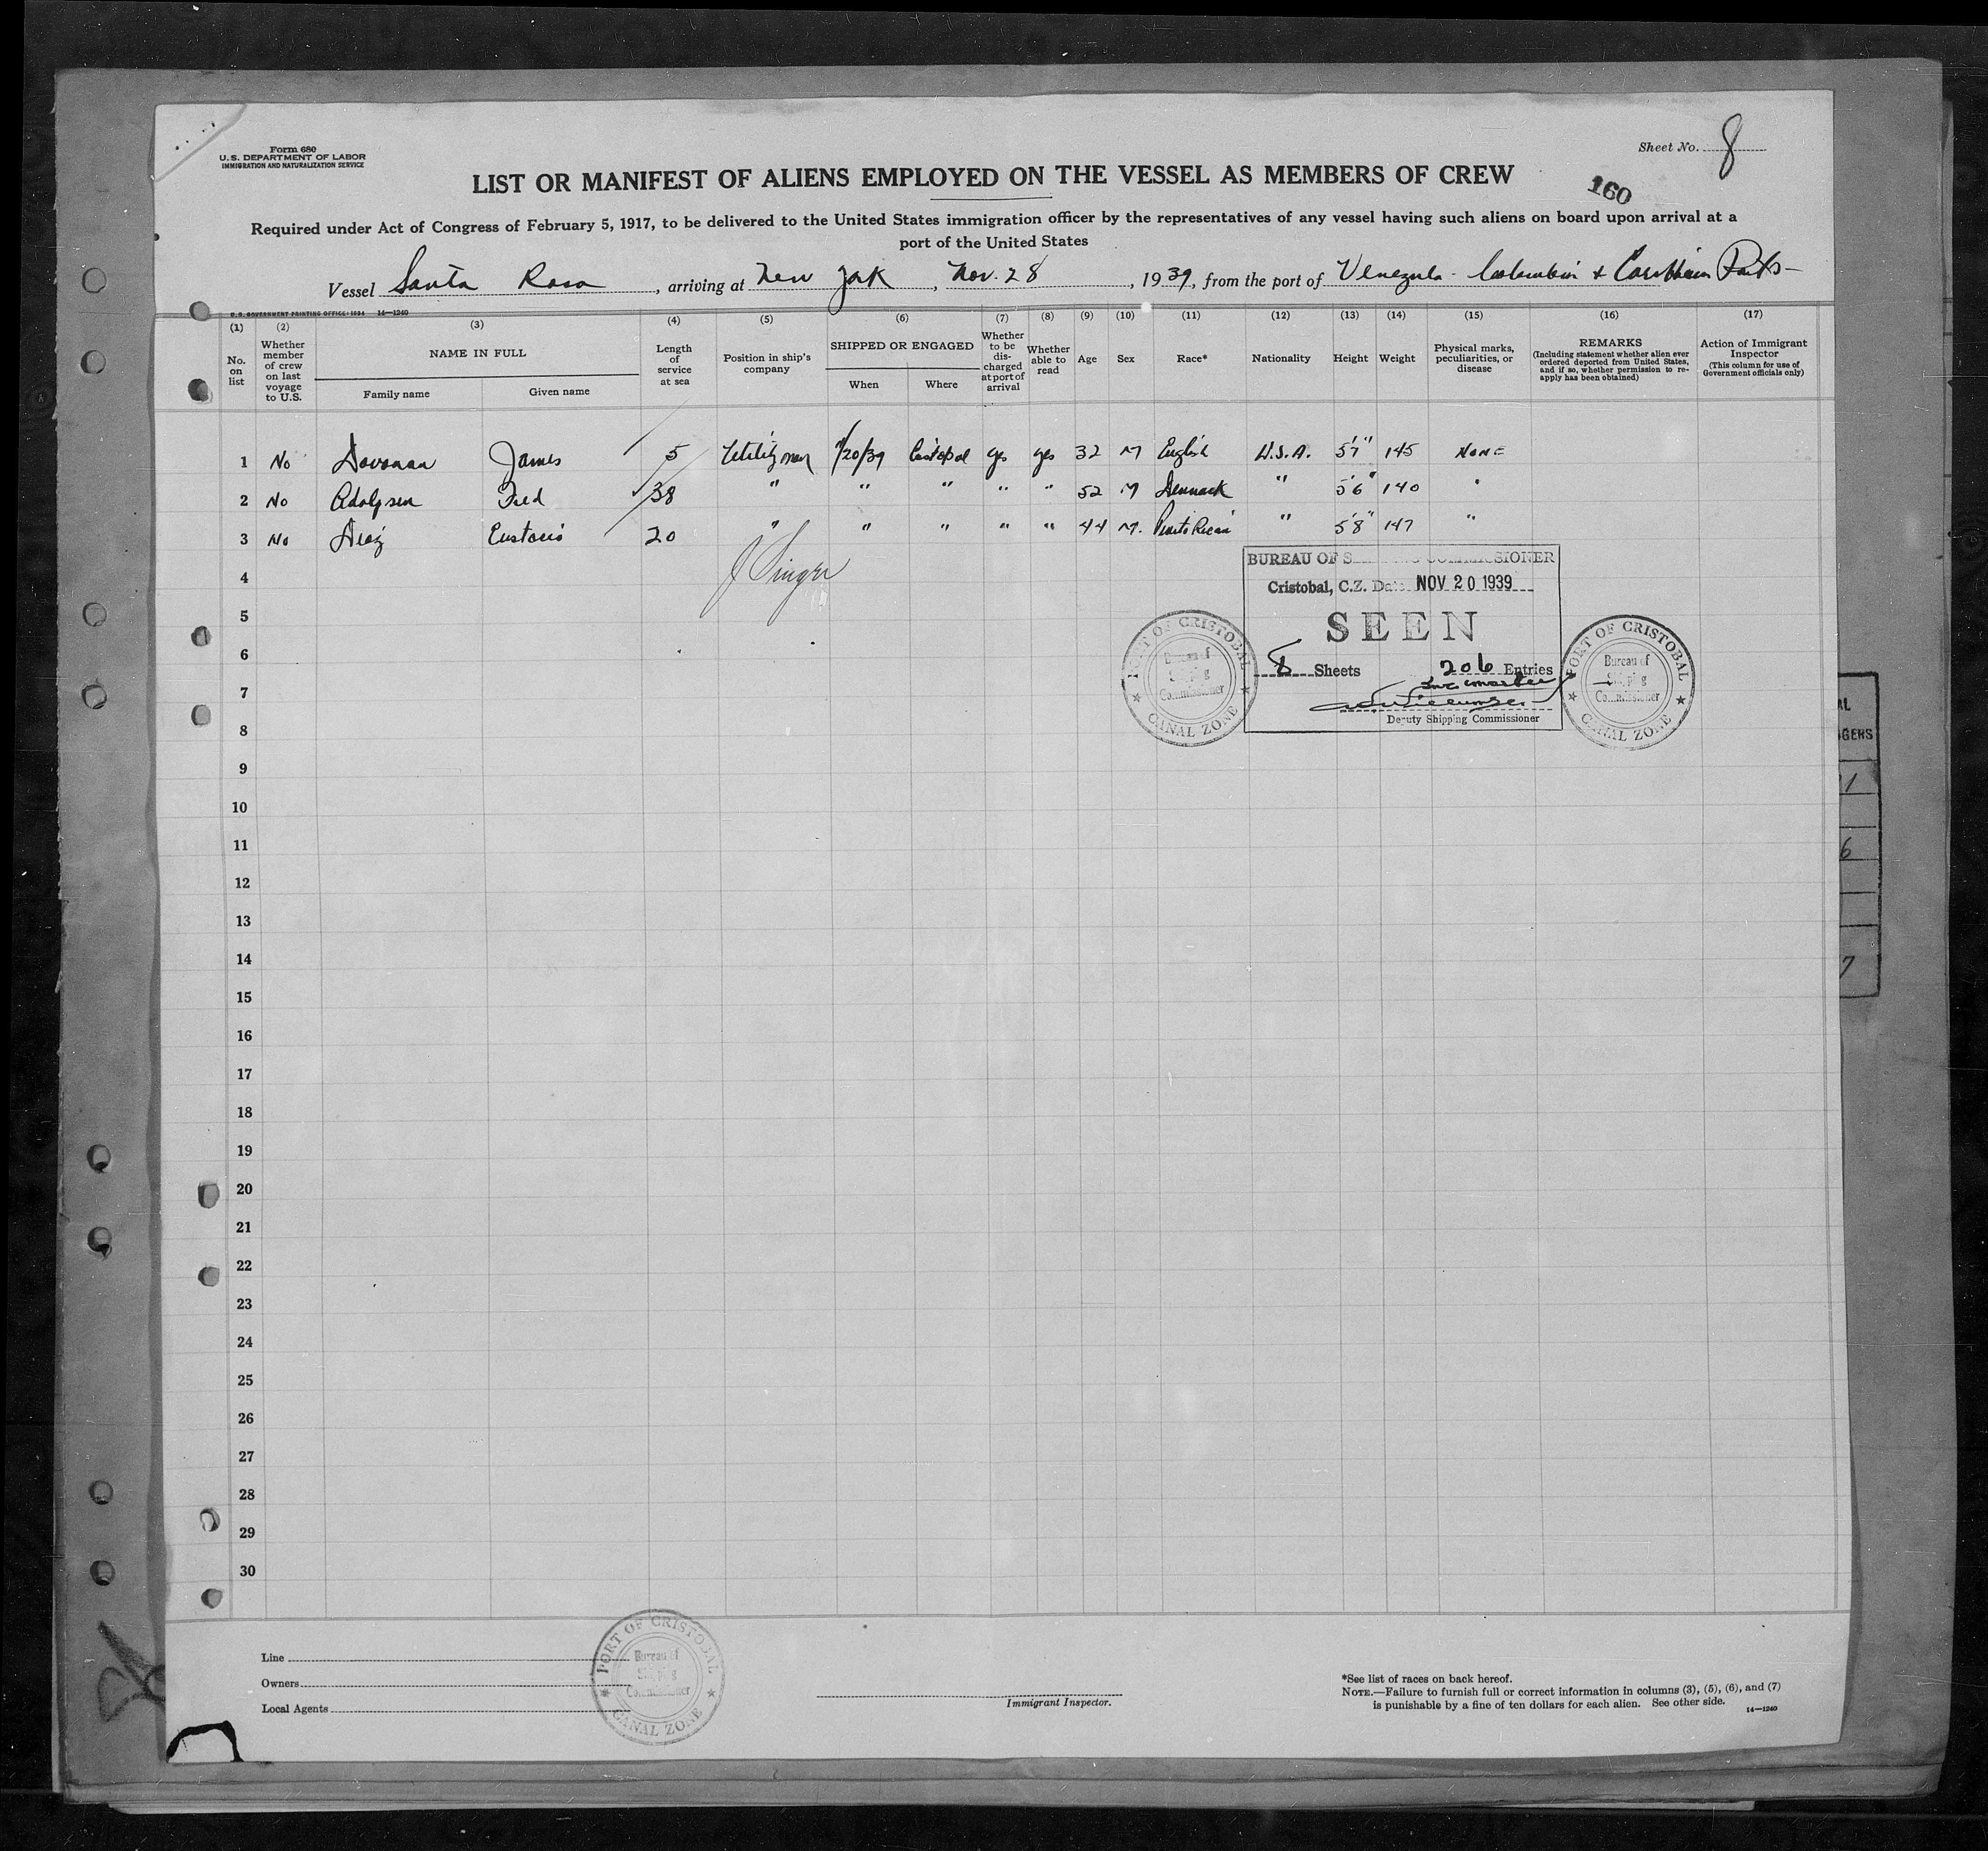 Form 680
U.S. DEPARTMENT OF LABOR
IMMIGRATION AND NATURALIZATION SERVICE
Sheet No. 8
LIST OR MANIFEST OF ALIENS EMPLOYED ON THE VESSEL AS MEMBERS OF CREW
160
Required under Act of Congress of February 5, 1917, to be delivered to the United States immigration officer by the representatives of any vessel having such aliens on board upon arrival at a
port of the United States
Vessel Santa Rosa, arriving at New York, Nov. 28, 1939, from the port of Venezula - Colombia & Caribbean Ports -
U. S. GOVERNMENT PRINTING OFFICE: 1934 14—1240
(1) (2) (3) (4) (5) (6) (7) (8) (9) (10) (11) (12) (13) (14) (15) (16) (17)
No. on list
Whether member of crew on last voyage to U.S.
NAME IN FULL
Family name
Given name
Length of service at sea
Position in ship's company
SHIPPED OR ENGAGED
When
Where
Whether to be discharged at port of arrival
Whether able to read
Age
Sex
Race*
Nationality
Height
Weight
Physical marks, peculiarities, or disease
REMARKS
(Including statement whether alien ever ordered deported from United States, and if so, whether permission to reapply has been obtained)
Action of Immigrant Inspector
(This column for use of Government officials only)
1 No Donovan James 5 Utilityman 11/20/39 Cristobal yes yes 32 M English U.S.A. 5'7" 145 NONE
2 No Adolpsen Fred 38 " " " " " 52 M Denmark " 5'6" 140 "
3 No Diaz Eustacio 20 " " " " " 44 M. Puerto Rican " 5'8" 147 "
J Singer
4
5
6
7
8
9
10
11
12
13
14
15
16
17
18
19
20
21
22
23
24
25
26
27
28
29
30
BUREAU OF S COMMISSIONER
Cristobal, C.Z. Date NOV 20 1939
SEEN
8 Sheets 206 Entries
Deputy Shipping Commissioner
PORT OF CRISTOBAL
Bureau of
Shipping
Commissioner
CANAL ZONE
PORT OF CRISTOBAL
Bureau of
Shipping
Commissioner
CANAL ZONE
AL
GERS
1
6
7
Line
Owners
Local Agents
PORT OF CRISTOBAL
Bureau of
Shipping
Commissioner
CANAL ZONE
Immigrant Inspector.
*See list of races on back hereof.
NOTE.—Failure to furnish full or correct information in columns (3), (5), (6), and (7)
is punishable by a fine of ten dollars for each alien. See other side.
14—1240